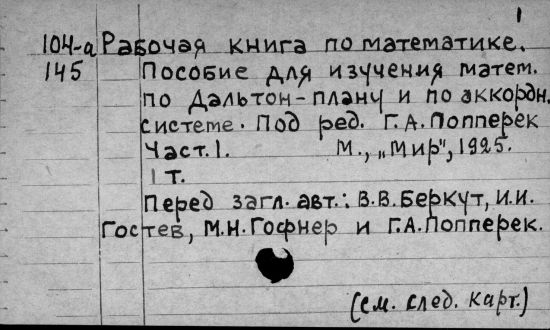 1
104-а Рабочая книга по математике.
145 Пособие для изучения матем.
по Дальтон-плану и по аккордн.
системе. Под ред. Г.А.Попперек
Част.1. М., „Мир", 1925.
1 т.
Перед загл. авт.: В.В.Беркут, И.И.
Гостев, М.Н.Гофнер и Г.А.Попперек.
(см. след. карт.)